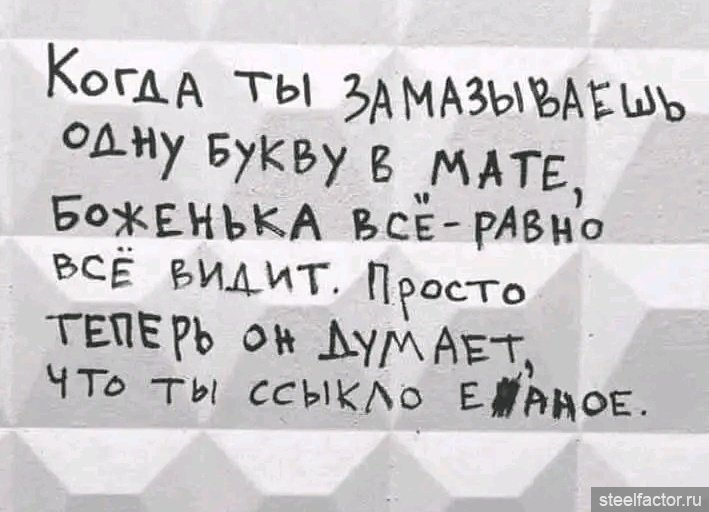 Когда ты замазываешь
одну букву в мате,
Боженька всё-равно
всё видит. Просто
теперь он думает,
что ты ссыкло е█аное.
steelfactor.ru